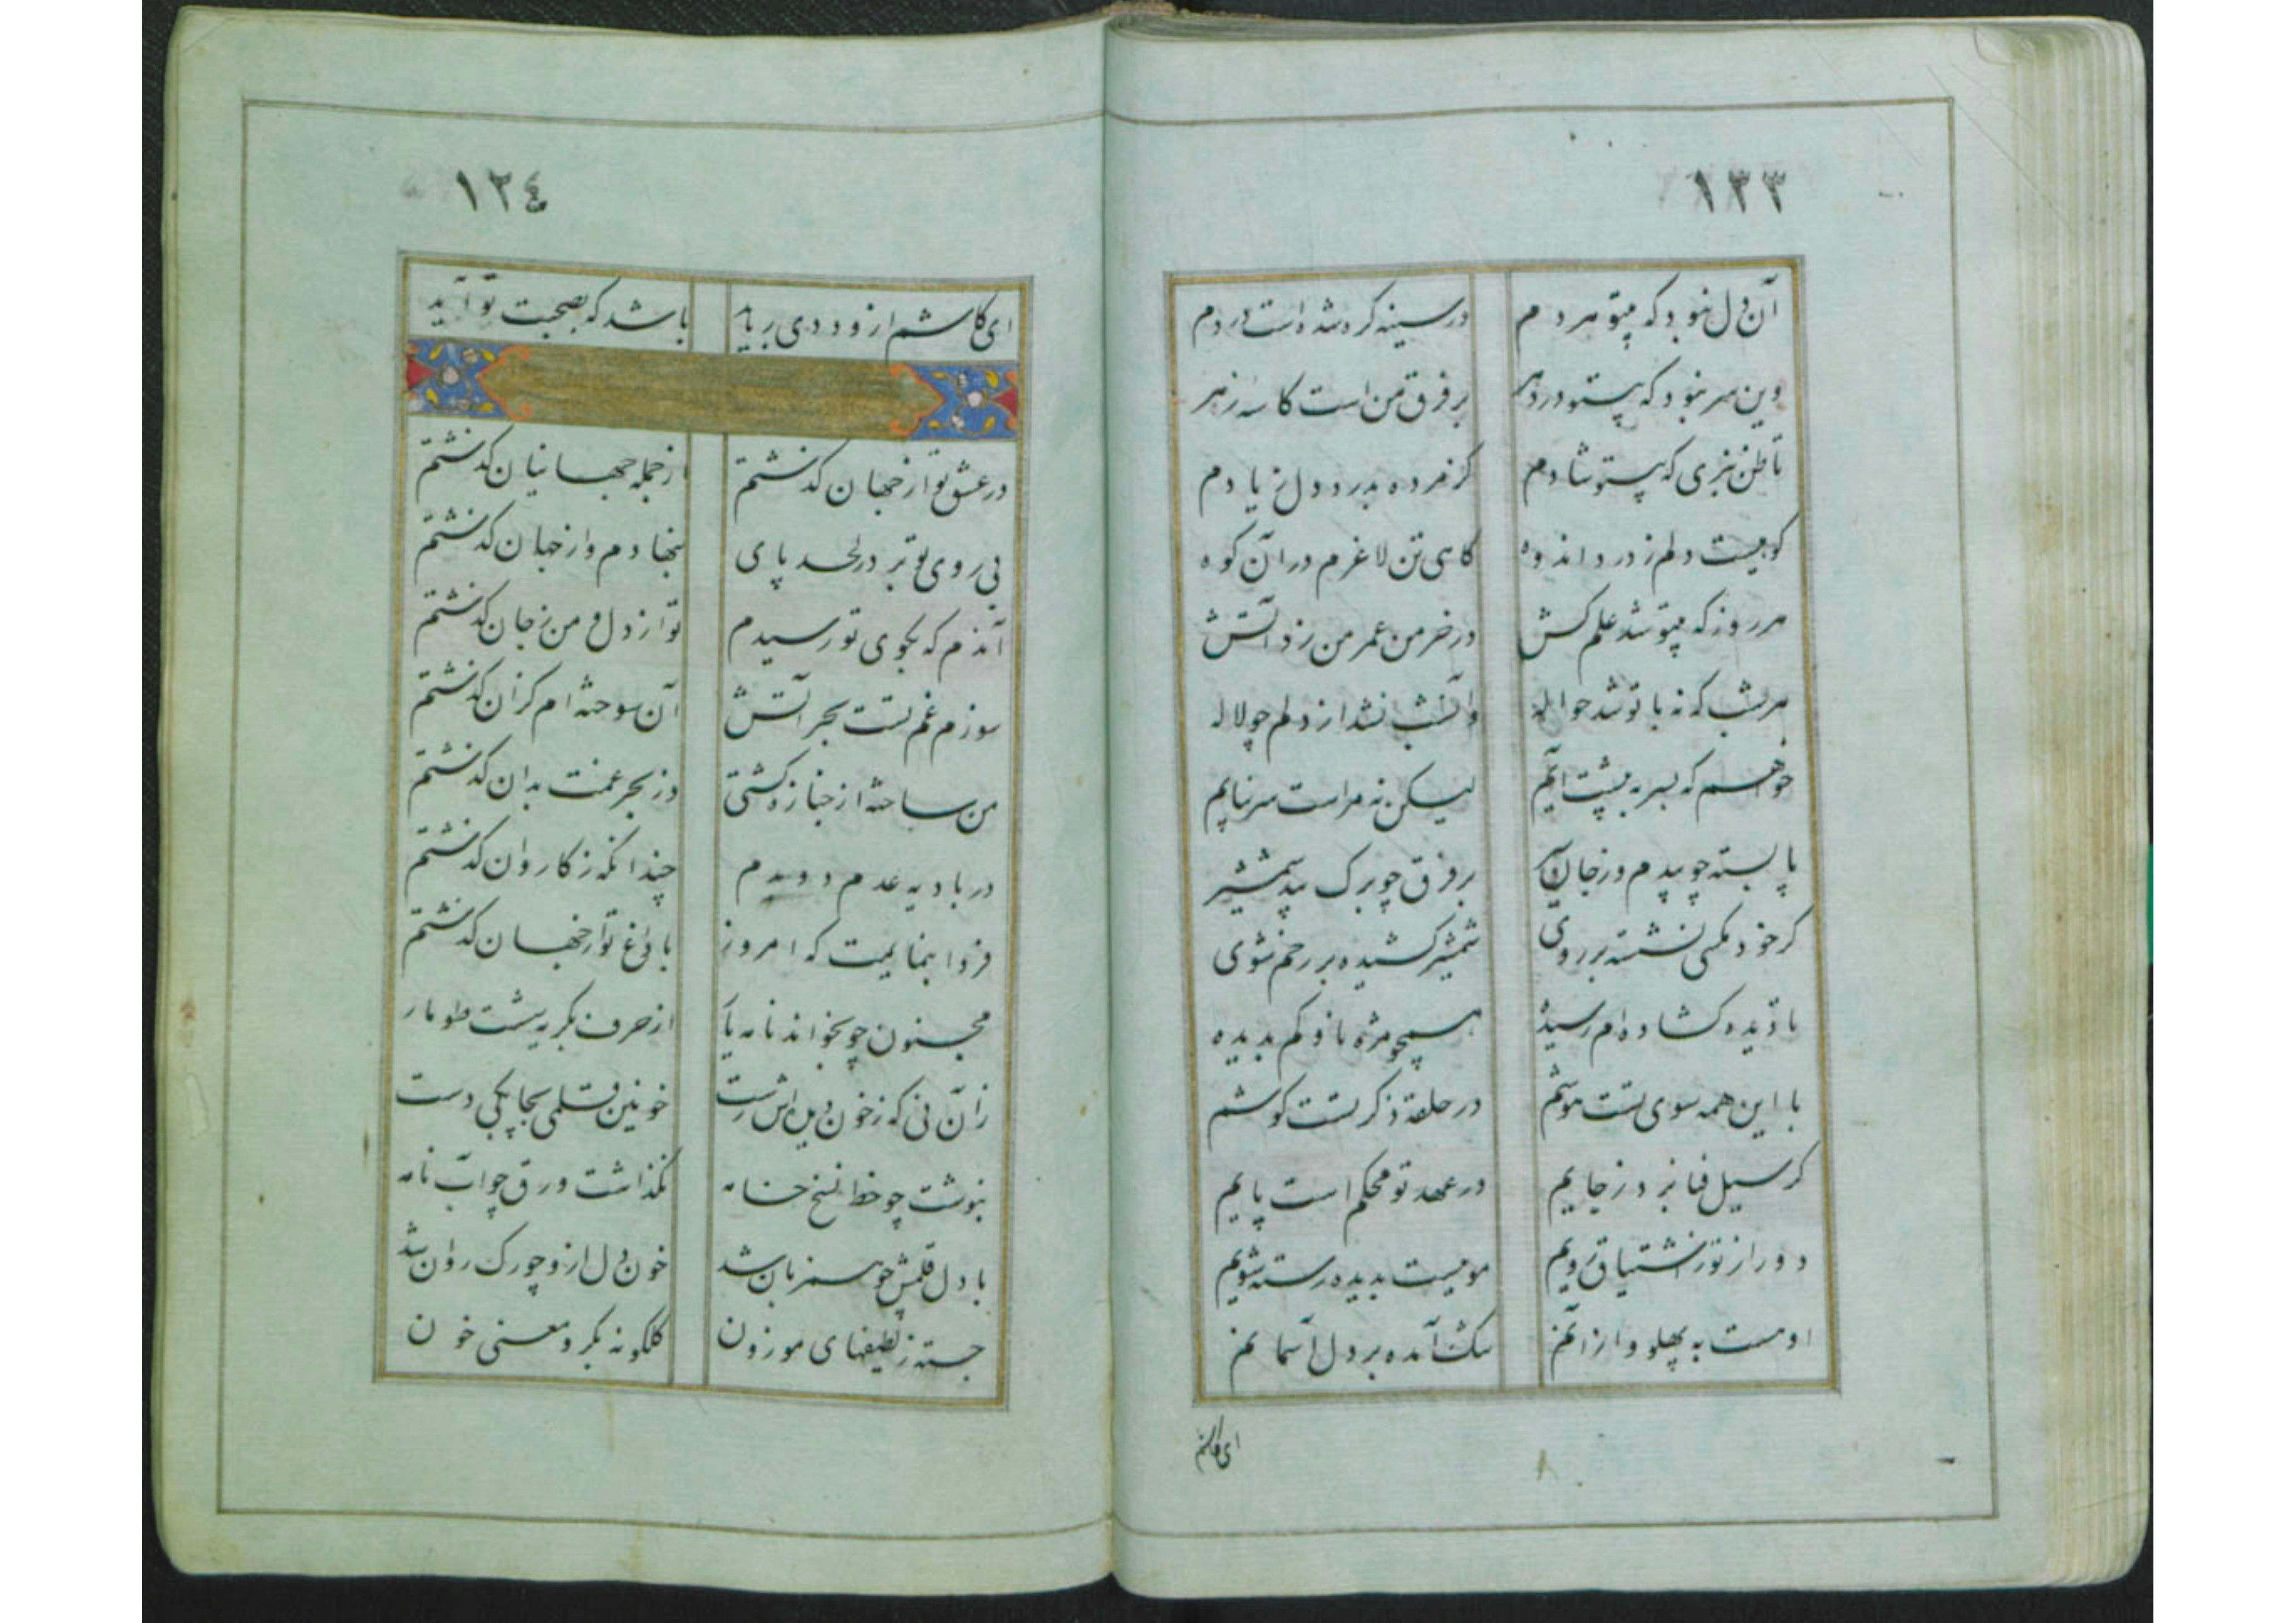 ١٢٣
آن دل نبود که بیتو هر دم در سینه گره شده است دردم
وین سر نبود که بیتو در دهر بر فرق من است کاسه زهر
تا ظن نبری که بیتو شادم کز مرده بدرد دل ز یادم
کوهیست دلم ز درد اندوه کاهی تن لاغرم در آن کوه
هر روز که بیتو شد علم کش در خرمن عمر من زد آتش
هر شب که نه با تو شد حواله وآتش نشد از دلم چو لاله
خواهم که بسر به پیشت آیم لیکن نه مراست سر نه پایم
پا بسته چو بیدم وز جان بر فرق چو برک بید شمشیر
کر خود مکسی نشسته بر روی شمشیر کشیده بر رخم شوی
تا دیده کشاده ام رسیده همچو مژه ناوکم بدیده
با این همه سوی تست هوشم در حلقه ذکر تست کوشم
کر سیل فنا برد ز جایم در عهد تو محکم است پایم
دور از تو ز اشتیاق رویم مویست بدیده رسته شویم
او مست به پهلو وار از آنم سک آمده بر دل آسمانم
ای کاشم
١٢٤
ای کاشم از وددی رباید باشد که بصحبت تو آید
در عشق تو از جهان کذشتم از جمله جهانیان کذشتم
بی روی تو بر در لحد پای بنهادم و از جهان کذشتم
آندم که بکوی تو رسیدم تو از دل و من ز جان کذشتم
سوزم غم تست بحر آتش آن سوخته ام کزان کذشتم
من ساخته از جنازه کشتی وز بحر غمت بدان کذشتم
در بادیه عدم دویدم چندانکه ز کاروان کذشتم
فردا بنمایمت که امروز با داغ تو از جهان کذشتم
مجنون چو بخواند نامه یار از حرف بکریه شست طومار
زان نی که ز خون دل اش رست خونین قلمی بچابکی دست
بنوشت چو خط نسخ خامه نکذاشت ورق جواب نامه
با دل قلمش چو همزبان شد خون دل ازو چو رک روان شد
جسته ز لطیفهای موزون کلکونه بکر و معنی خون